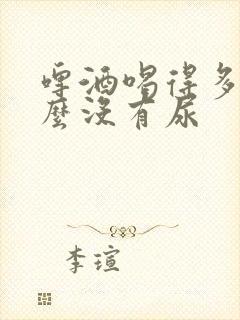 啤酒喝得多
麼沒有尿
李瑄